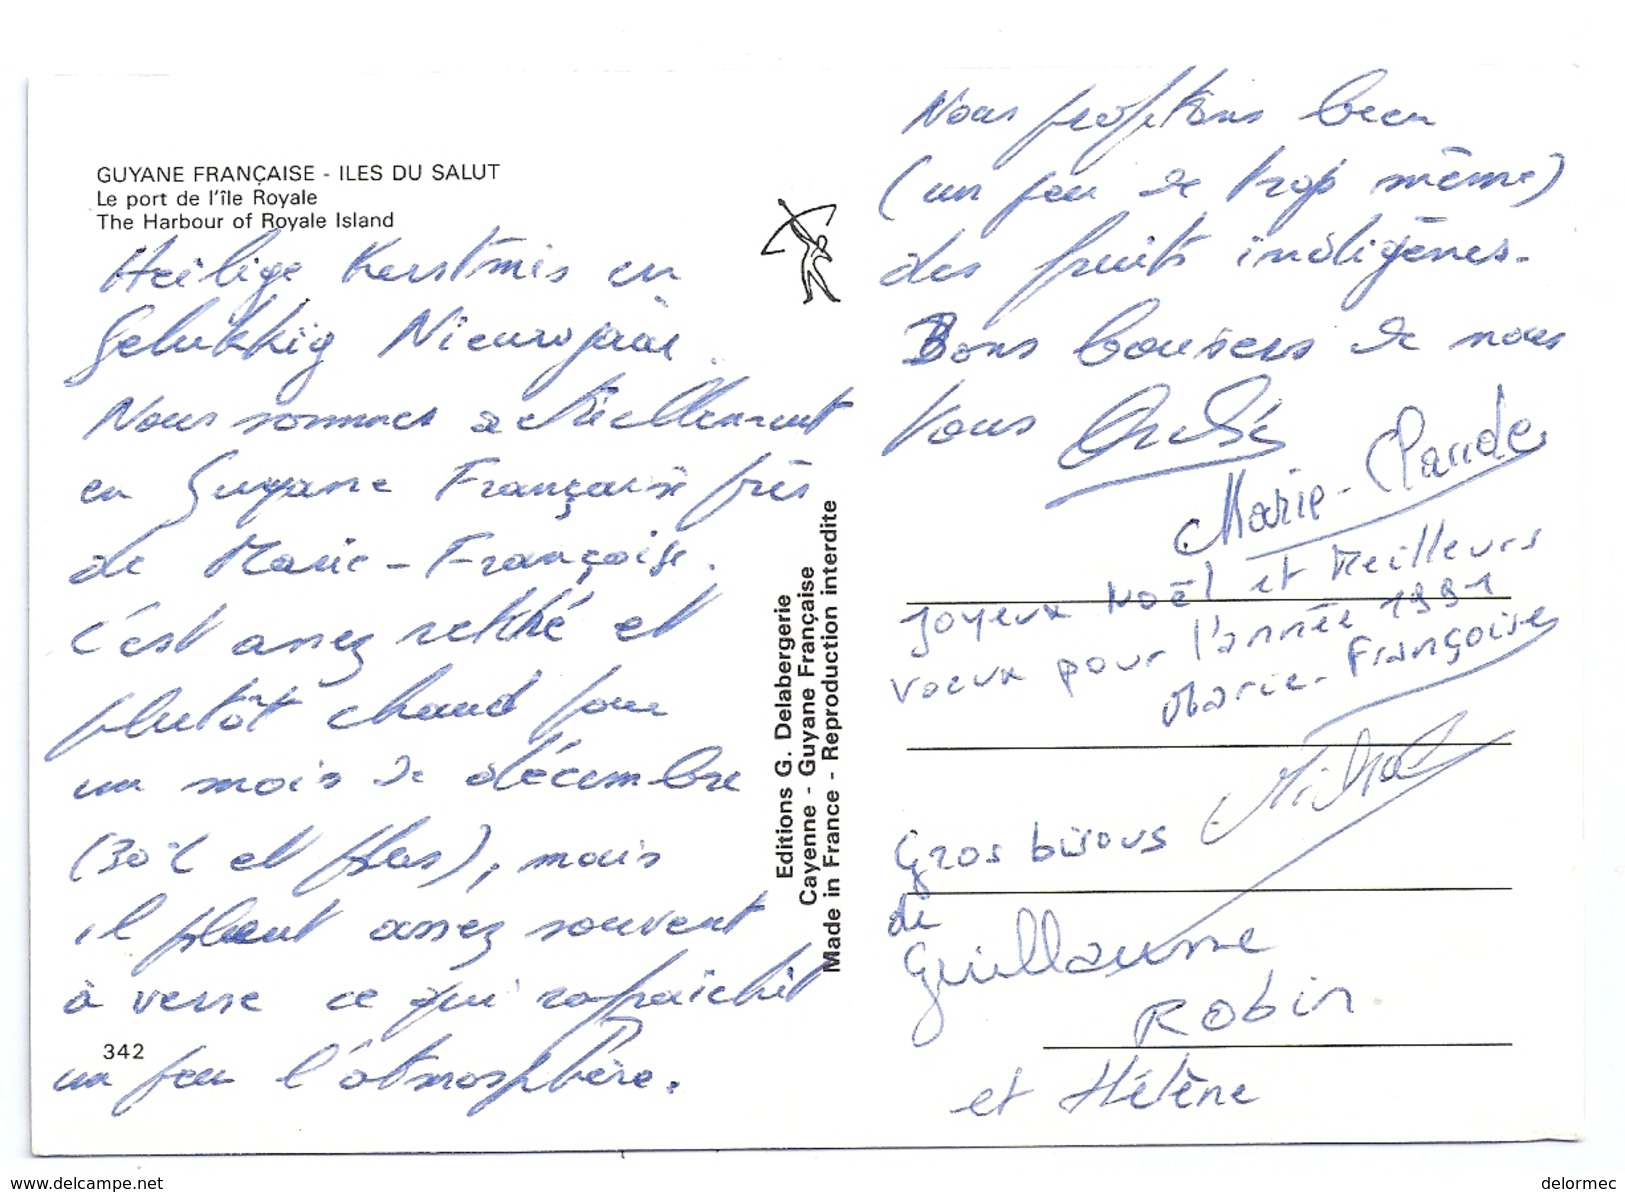 GUYANE FRANÇAISE - ILES DU SALUT
Le port de l'île Royale
The Harbour of Royale Island
Heilige Kerstmis en
Gelukkig Nieuwjaar.
Nous sommes actuellement
en Guyane Française près
de Marie-Françoise.
C'est assez retiré et
plutôt chaud pour
un mois de décembre
(30°C et plus), mais
il pleut assez souvent
à verse ce qui rafraîchit
342
un peu l'atmosphère.
Editions G. Delabergerie
Cayenne - Guyane Française
Made in France - Reproduction interdite
Nous profitons bien
(un peu de trop même)
des fruits indigènes.
Bons baisers de nous
tous
Marie-Claude
Joyeux Noël et Meilleurs
voeux pour l'année 1991
Marie-Françoise
Michel
Gros bisous
de
Guillaume
Robin
et Hélène
www.delcampe.net
delormec